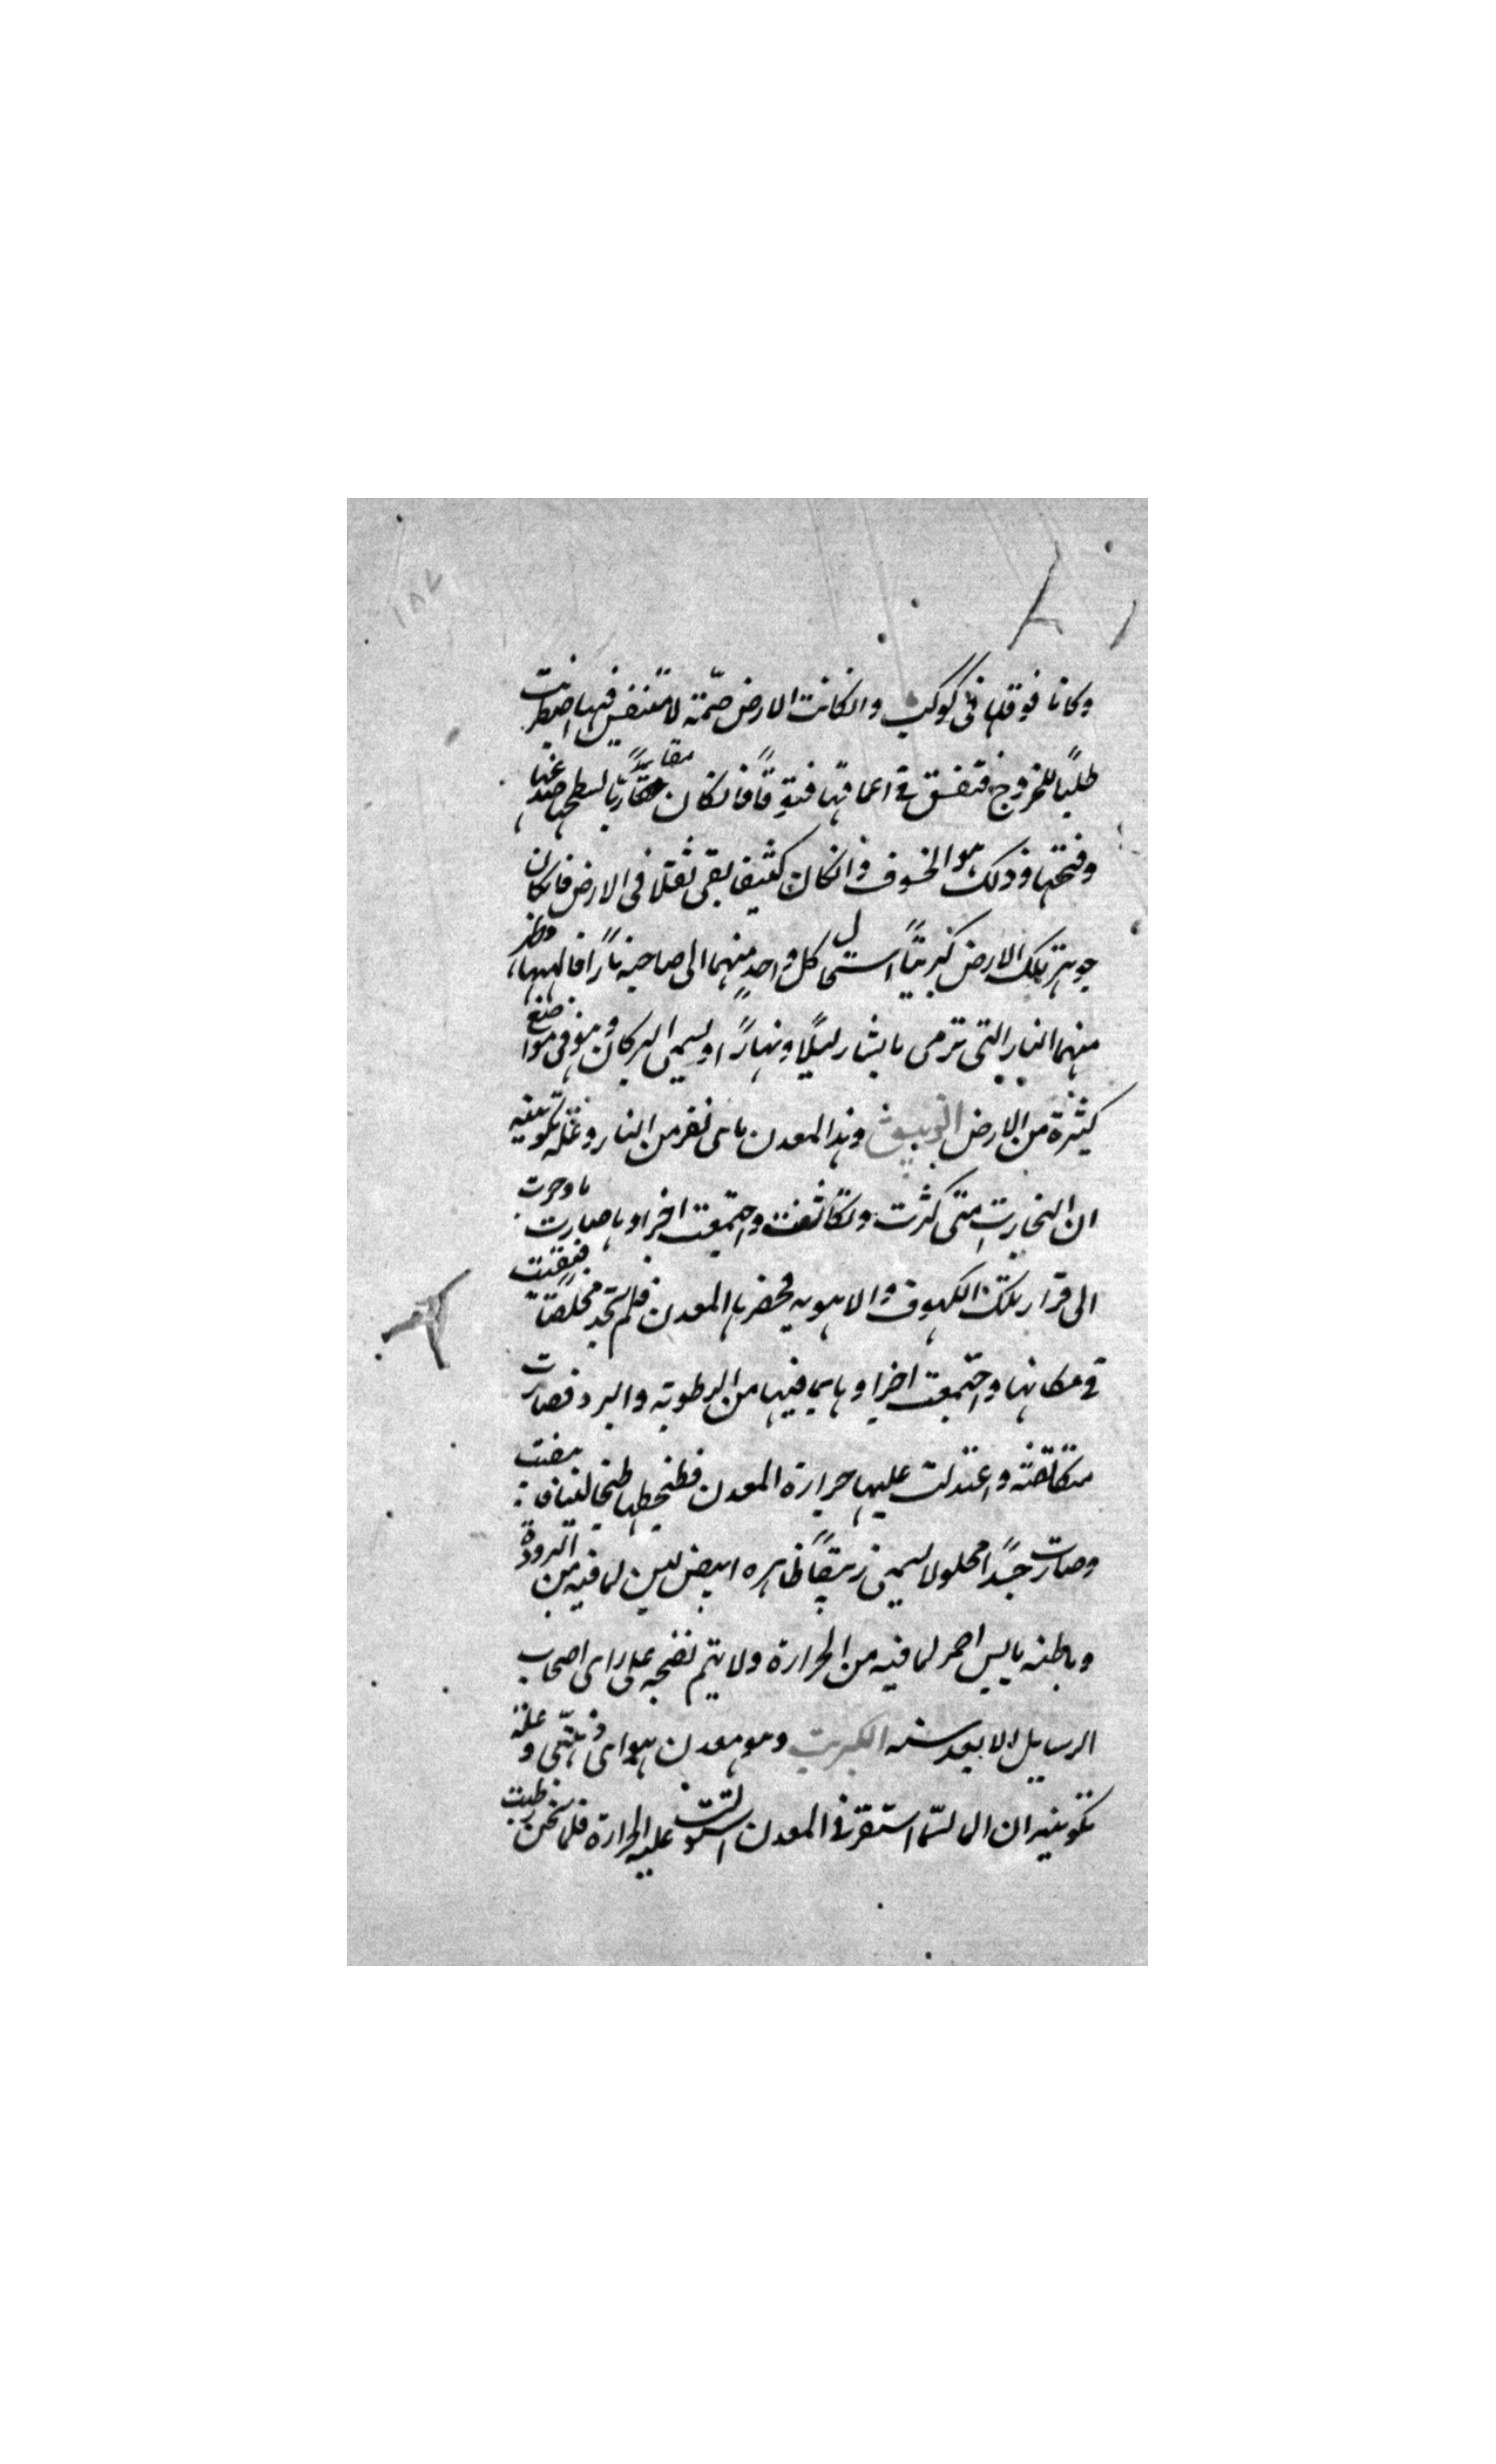 وكانا فوقها فى كوكب وانكانت الارض صمة لا متنفس فيها اضطربت
طلبًا للخروج فتفسق فى اعماقها فتوقًا فانكان مقاربًا لسطحها صدعها
وفتحها وذلك هو الخسوف وانكان كثيفا بقى ثقلا فى الارض فانكان
جوهر تلك الارض كبريتيًا استحال كل واحد منهما الى صاحبه نارًا فالهبها وظهر
منهما النار التى ترمى بالشرار ليلًا ونهارًا ويسمى البركان وهو فى مواضع
كثيرة من الارض الزيبق وهذا المعدن ماى نفر من النار وعلة تكوينه
ان البخارت متى كثرت وتكاثفت واجتمعت اجزاوها صارت ماء وجرت
الى قرار تلك الكهوف والاهويه فحضرها المعدن فلم تجد مخلصًا فبقيت
فى مكانها واجتمعت اجزاوها بما فيها من الرطوبة والبرد فصارت
متكاثفة واعتدلت عليها حرارة المعدن فطبختها طبخا لينا فابيضت
وصارت جسدًا محلولا يسمى زيبقًا ظاهره ابيض لين لما فيه من البرودة
وباطنه يابس احمر لما فيه من الحرارة ولا يتم نضجه على راى اصحاب
الرسايل الا بعد سنه الكبريت وهو معدن هواى دهنى وعلة
تكوينه ان الما لما استقر فى المعدن استولت عليه الحرارة فلما سخن رطبت